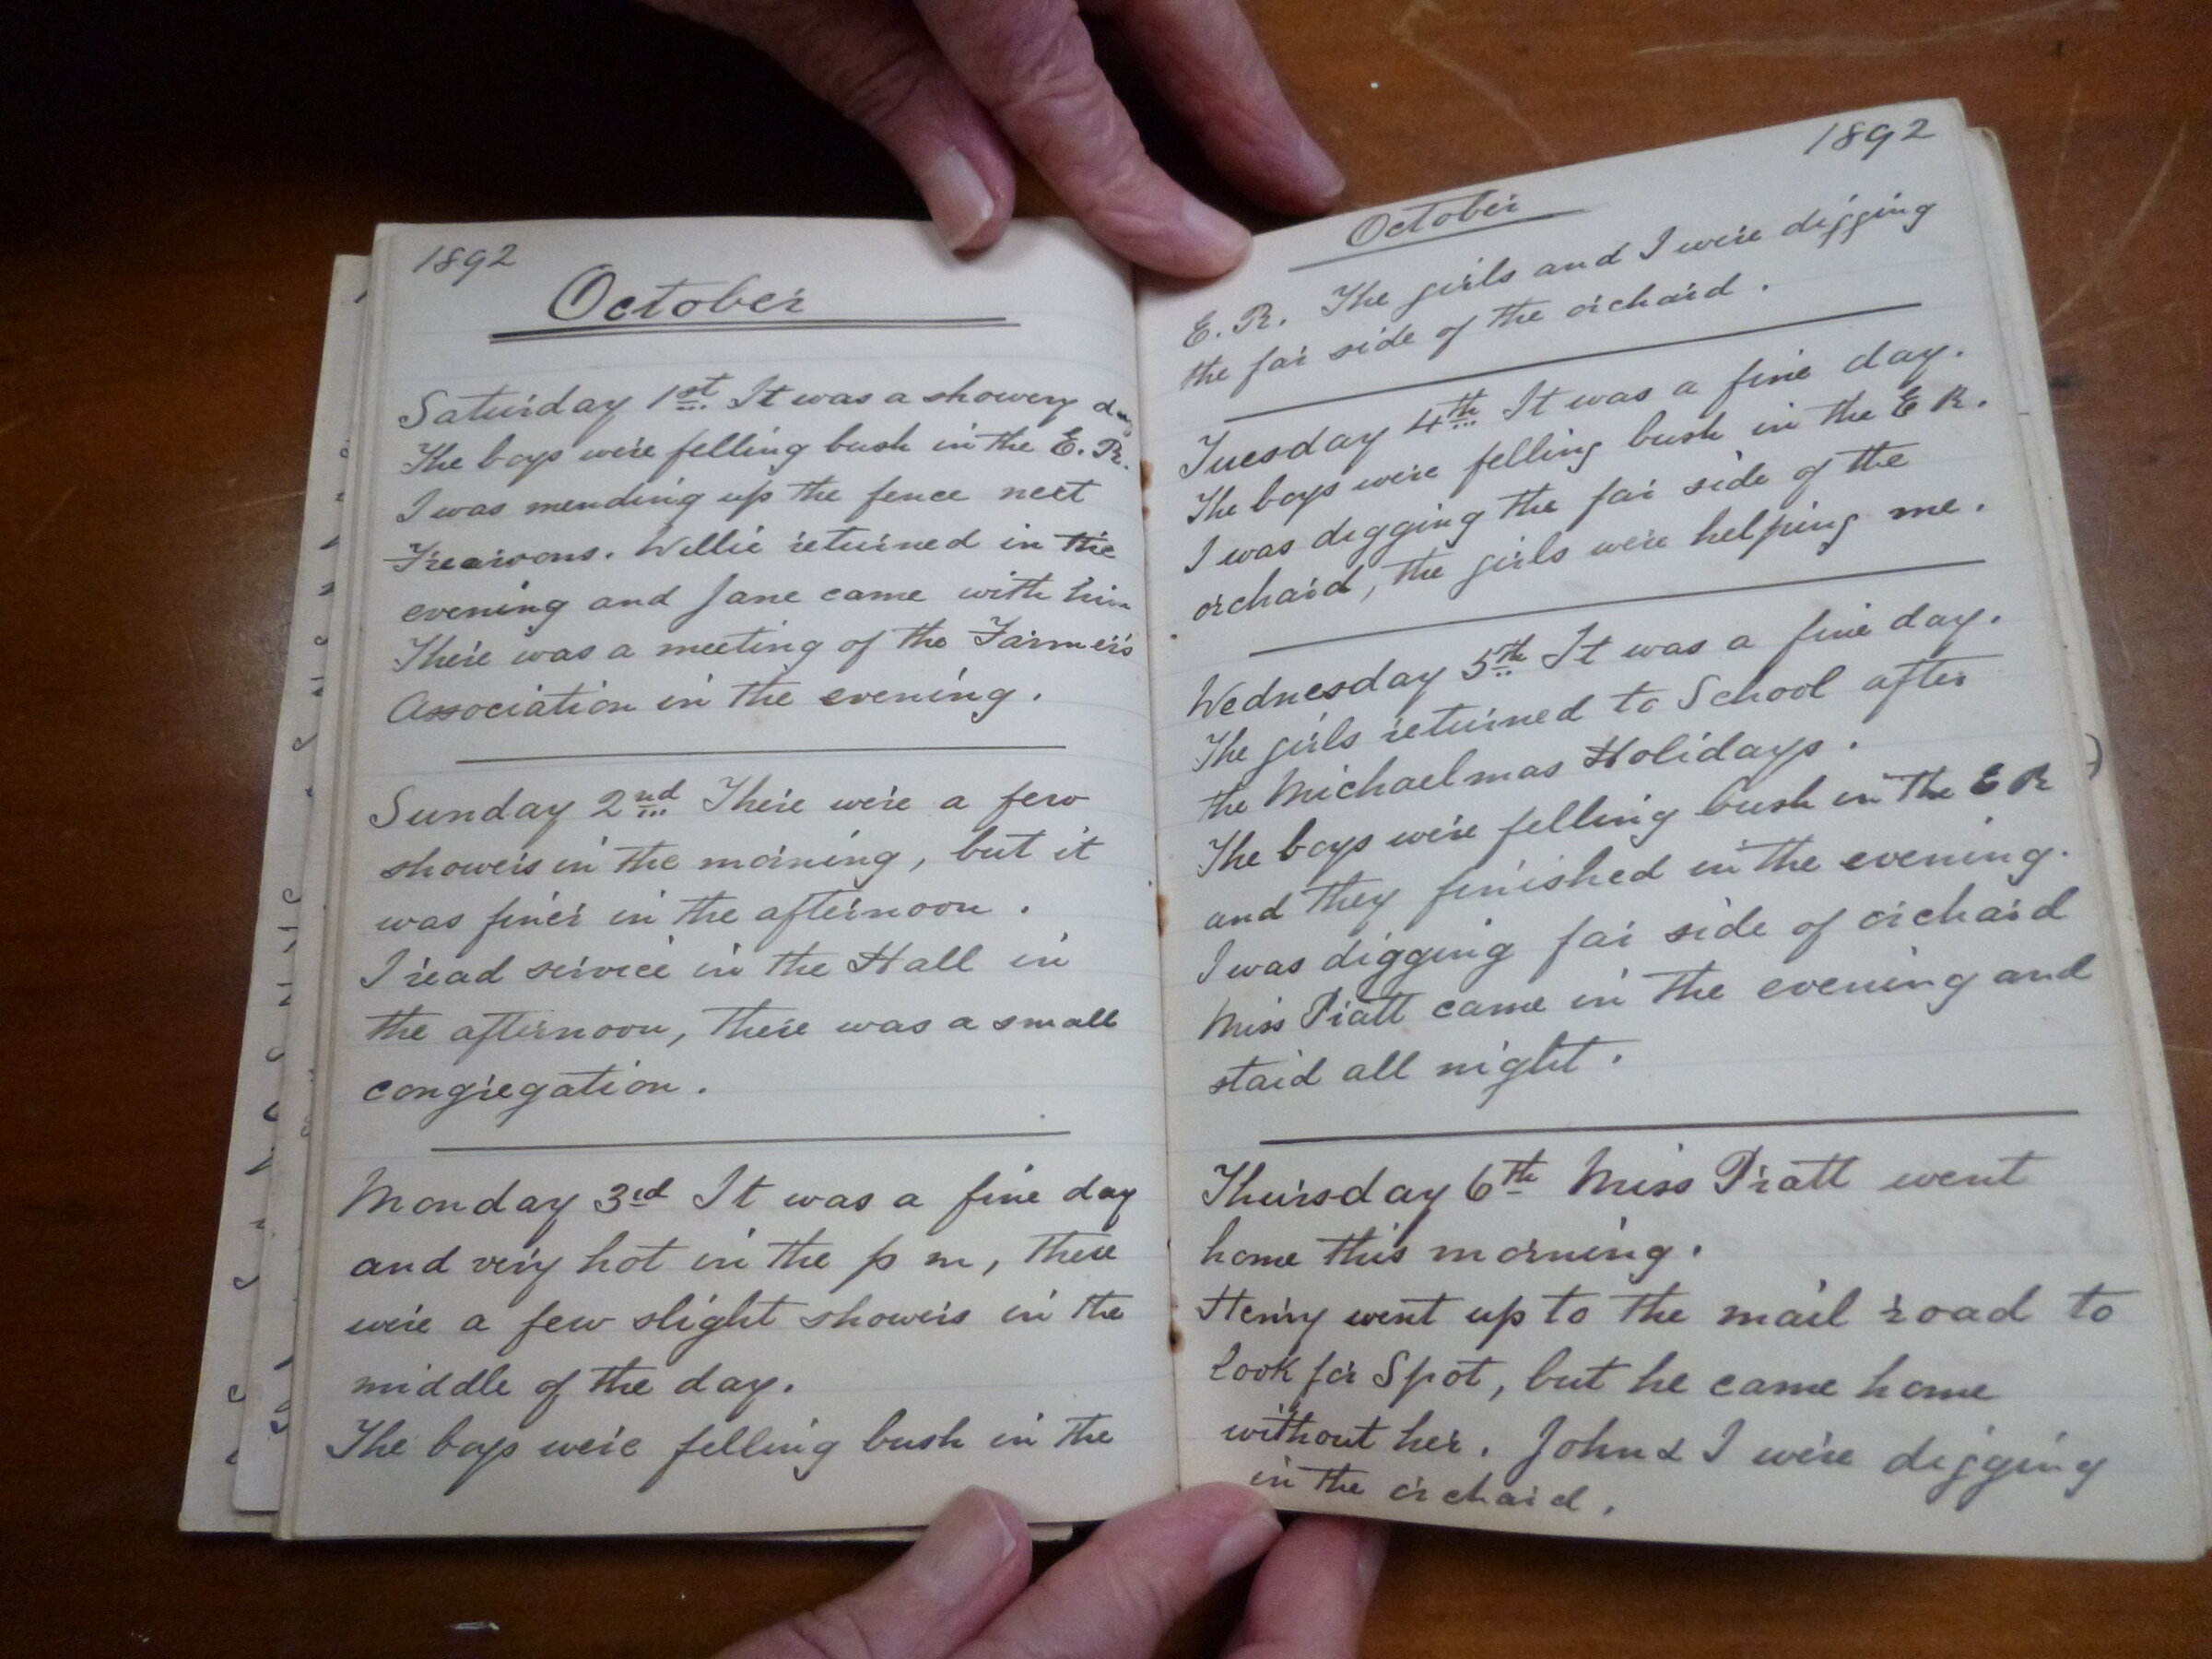 1892
October
Saturday 1st It was a showery day
The boys were felling bush in the E. R.
I was mending up the fence next
Frearsons. Willie returned in the
evening and Jane came with him
There was a meeting of the Farmers
Association in the evening.
Sunday 2nd There were a few
showers in the morning, but it
was finer in the afternoon.
I read service in the Hall in
the afternoon, there was a small
congregation.
Monday 3rd It was a fine day
and very hot in the p m, there
were a few slight showers in the
middle of the day.
The boys were felling bush in the
1892
October
E. R. The girls and I were digging
the far side of the orchard.
Tuesday 4th It was a fine day.
The boys were felling bush in the E R.
I was digging the far side of the
orchard, the girls were helping me.
Wednesday 5th It was a fine day.
The girls returned to School after
the Michaelmas Holidays.
The boys were felling bush in the E R
and they finished in the evening.
I was digging far side of orchard
Miss Pratt came in the evening and
staid all night.
Thursday 6th Miss Pratt went
home this morning.
Henry went up to the mail road to
look for Spot, but he came home
without her. John & I were digging
in the orchard.